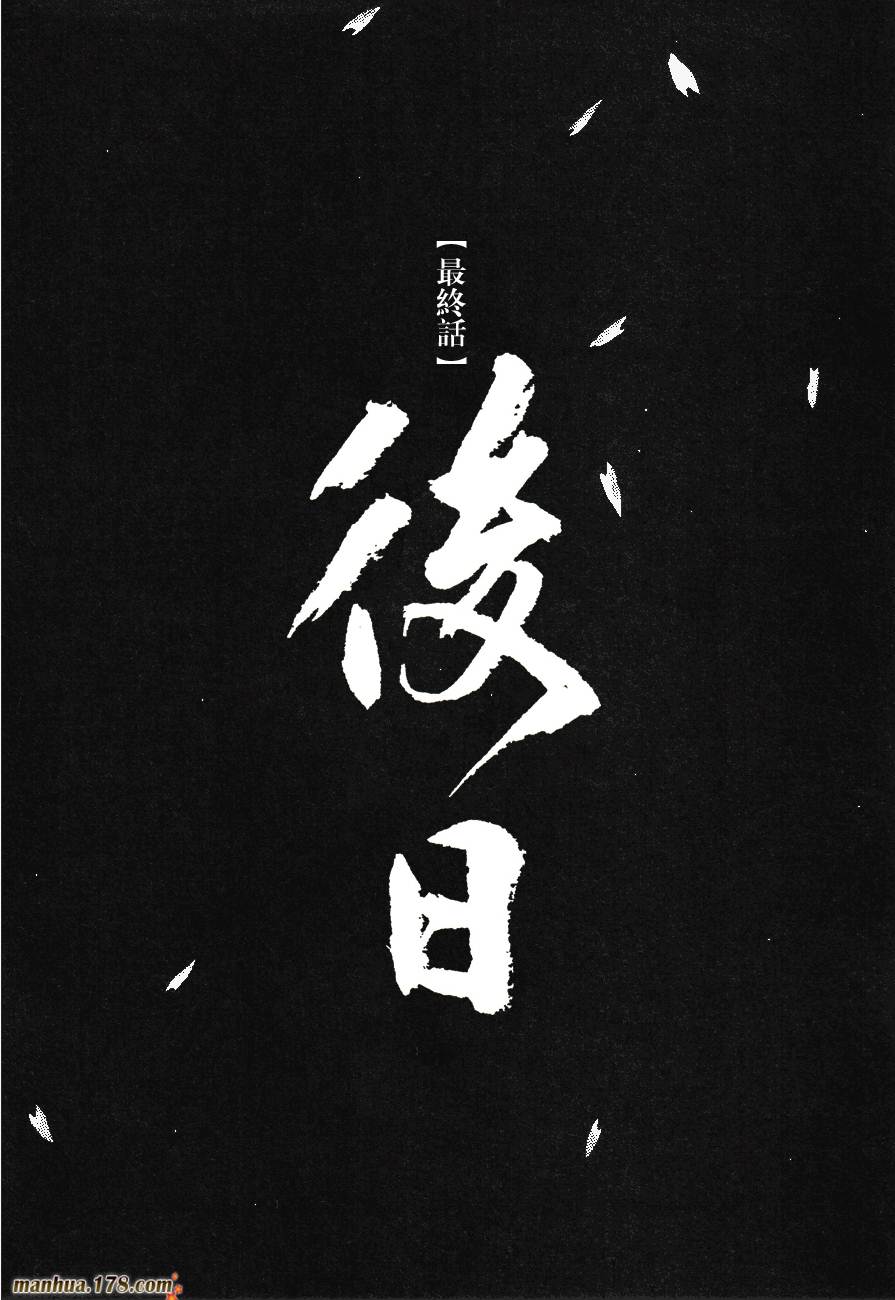 【最終話】
後日
manhua.178.com